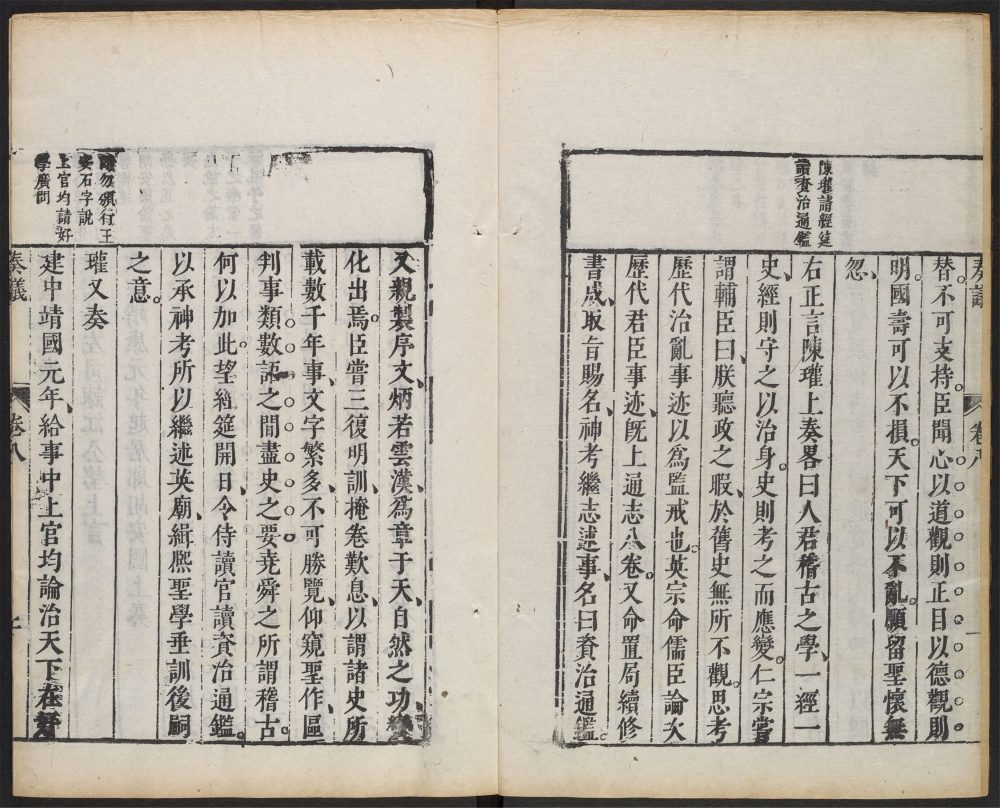 陳瓘請經筵
讀資治通鑑
奏議
卷八
替。不可支持。臣聞心以道觀則正目以德觀則
明。國壽可以不損。天下可以不亂。願留聖懷無
忽、
右正言陳瓘上奏畧曰人君稽古之學、一經一
史、經則守之以治身。史則考之而應變。仁宗嘗
謂輔臣曰、朕聽政之暇、於舊史無所不觀。思考
歷代治亂事迹以爲監戒也。英宗命儒臣論次
歷代君臣事迹、旣上通志八卷。又命置局續修
書成、取旨賜名、神考繼志述事、名曰資治通鑑。
又親製序文、炳若雲漢爲章于天、自然之功、
化出焉。臣嘗三復明訓、掩卷歎息、以謂諸史所
載數千年事、文字繁多、不可勝覽、仰窺聖作、區
判事類數語之間盡史之要堯舜之所謂稽古。
何以加此。望經筵開日、令侍讀官讀資治通鑑。
以承神考所以繼述英廟、緝熈聖學垂訓後嗣
之意。
瓘又奏
勿頒行王
安石字說
上官均請好
學廣問
建中靖國元年、給事中上官均論治天下在好
奏議
卷八